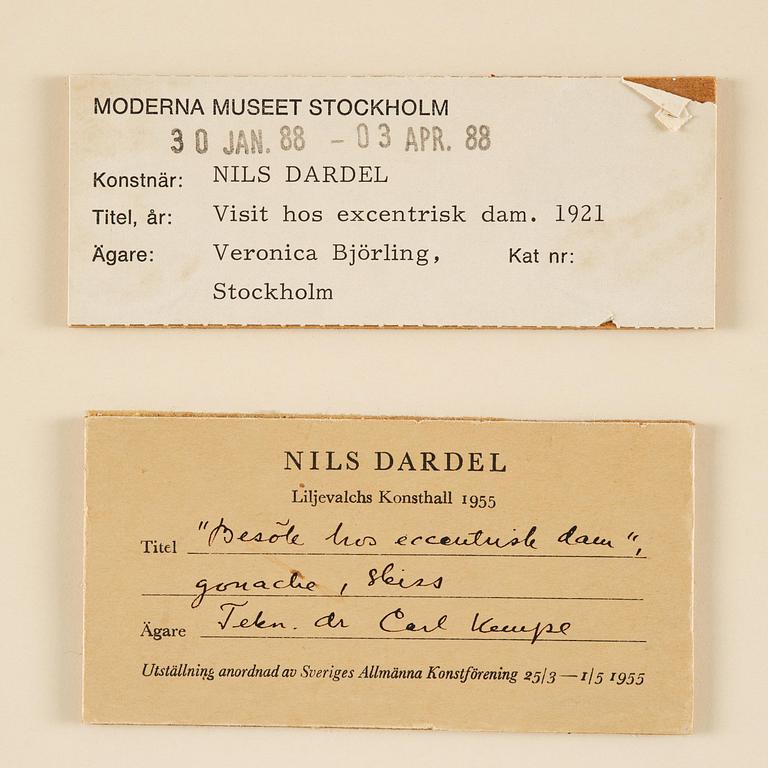 MODERNA MUSEET STOCKHOLM
30 JAN. 88 – 03 APR. 88
Konstnär: NILS DARDEL
Titel, år: Visit hos excentrisk dam. 1921
Ägare: Veronica Björling, Kat nr:
Stockholm
NILS DARDEL
Liljevalchs Konsthall 1955
Titel "Besök hos eccentrisk dam",
gouache, skiss
Ägare Tekn. dr Carl Kempe
Utställning anordnad av Sveriges Allmänna Konstförening 25/3 — 1/5 1955